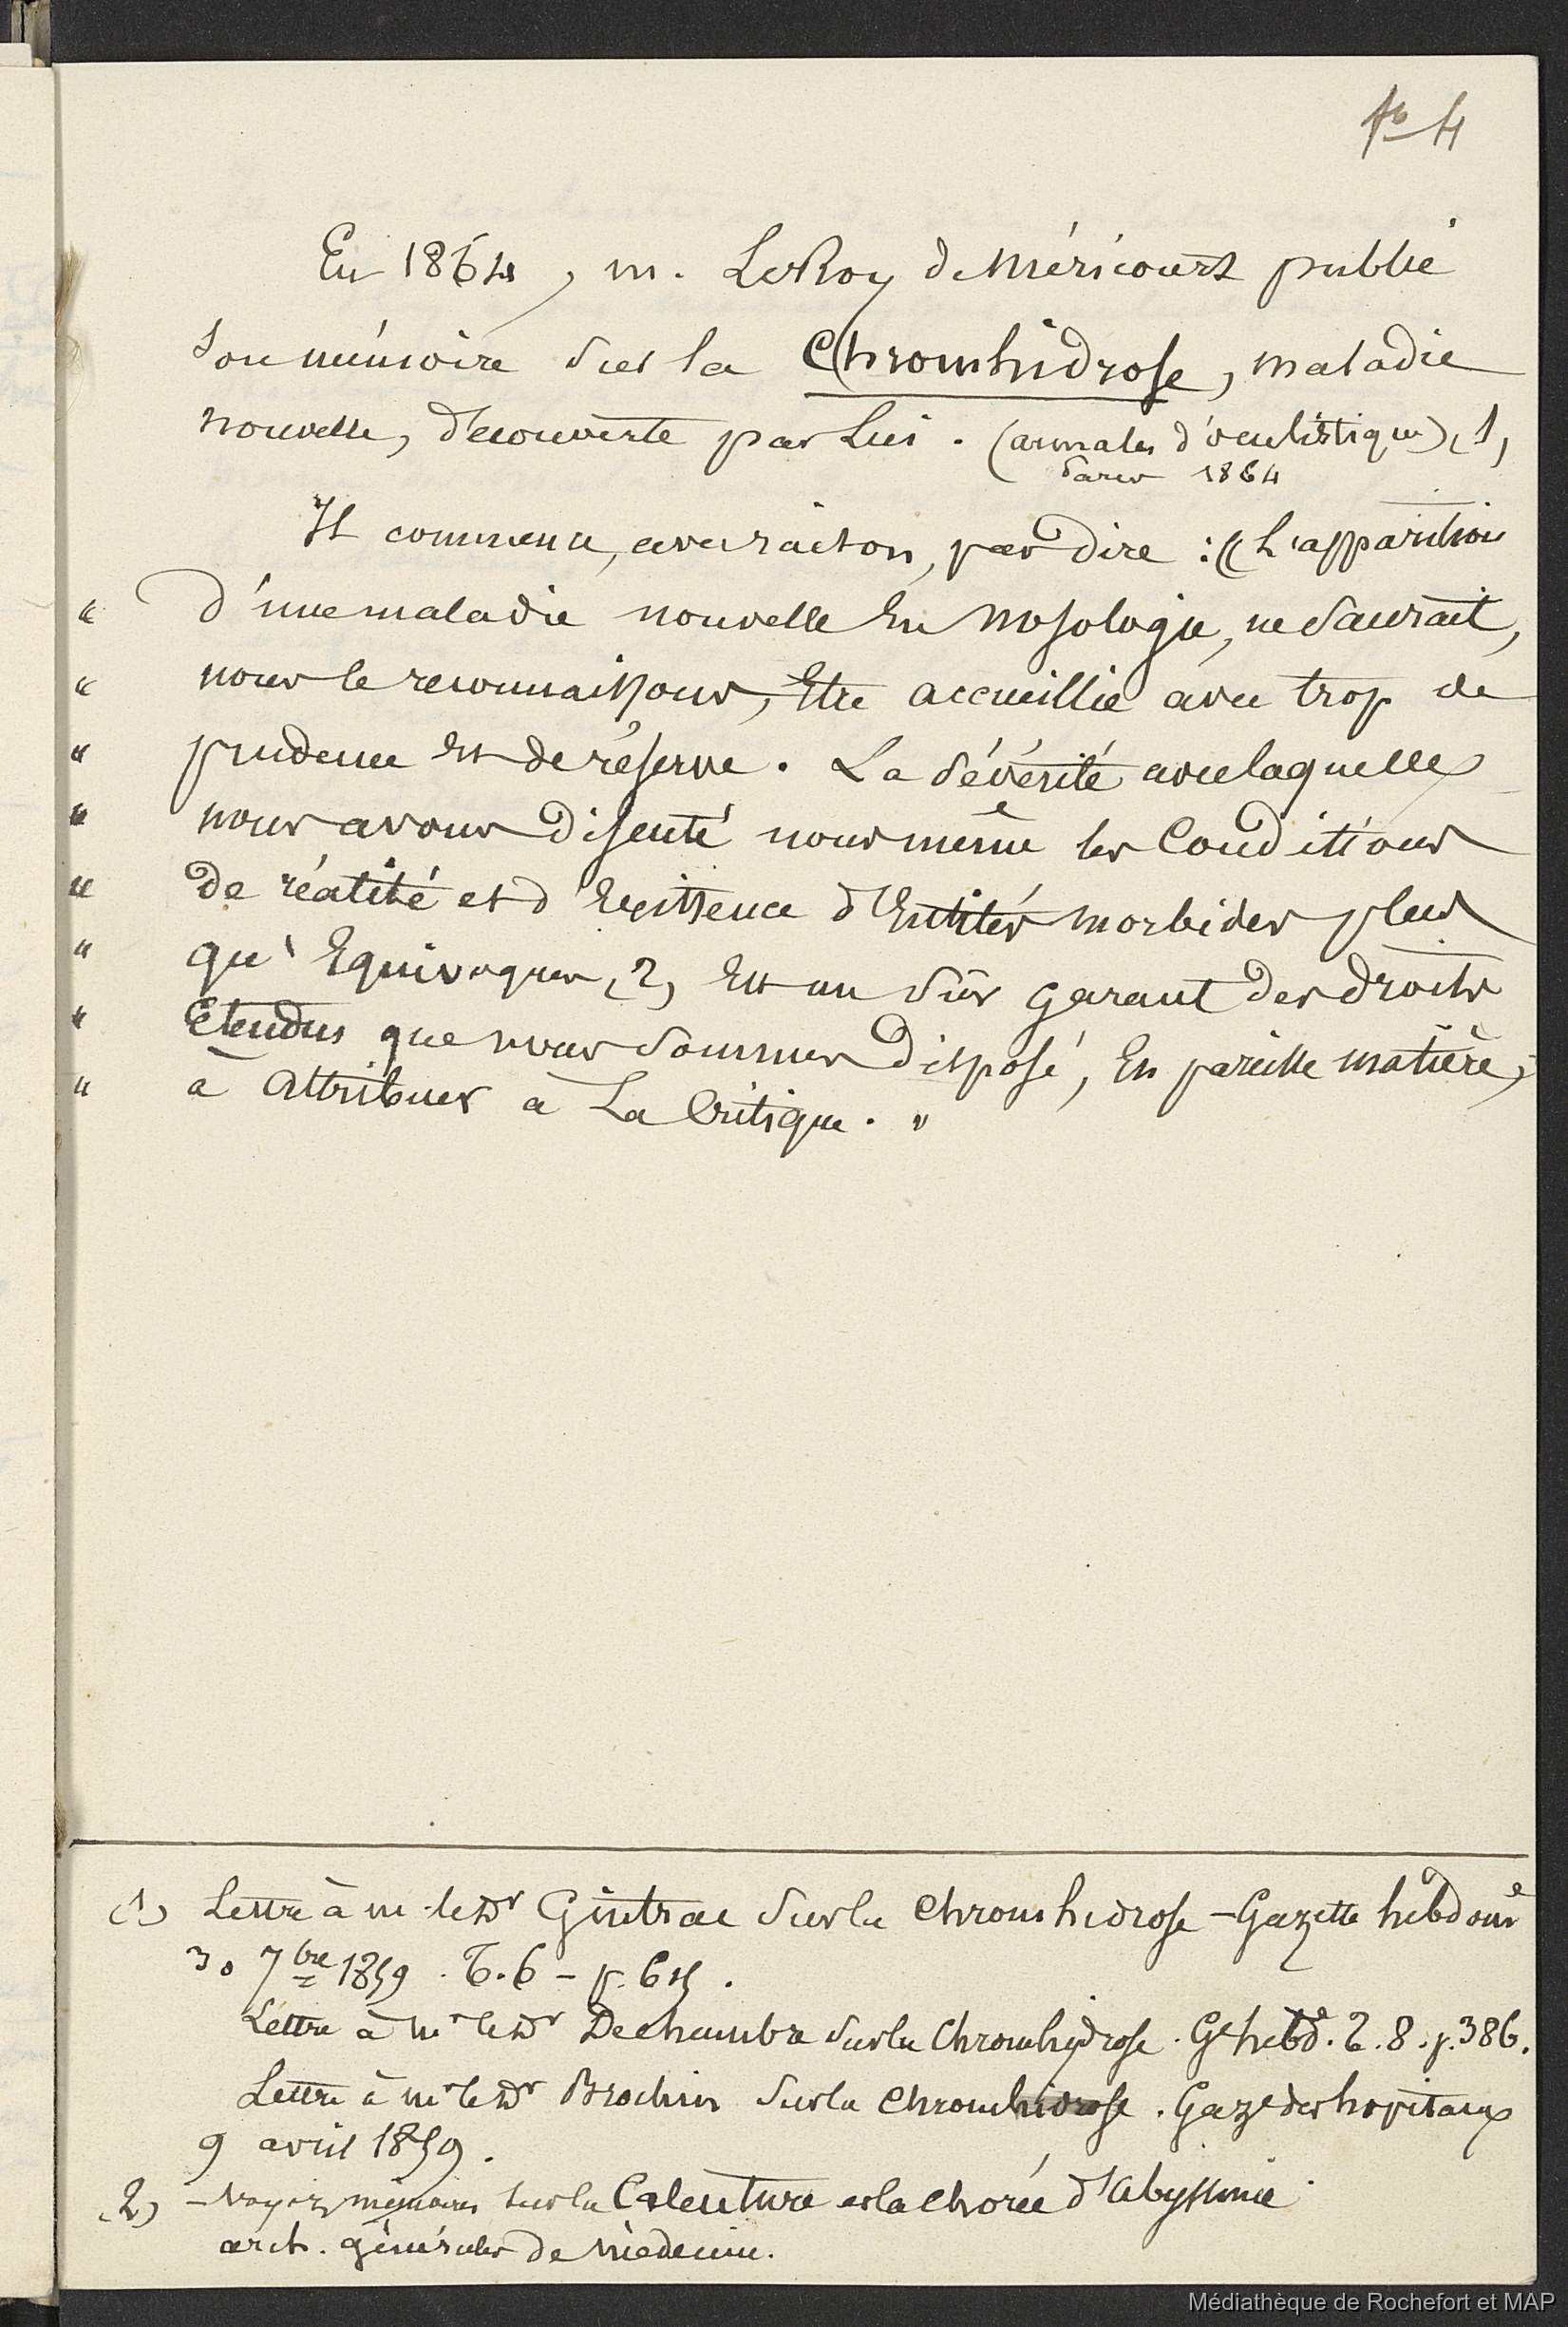 fo 4
En 1864, m. LeRoy de Méricourt publie
son mémoire sur la Chromhidrose, maladie
nouvelle, découverte par lui. (annales d'oculistique) (1)
Paris 1864
Il commence, avec raison, par dire : « L'apparition
" d'une maladie nouvelle en nosologie, ne saurait,
" nous le reconnaissons, Etre accueillie avec trop de
" prudence Et de réserve. La sévérité avec laquelle
" nous avons discuté nous même les Conditions
" de réalité et d'Existence d'Entités morbides plus
" qu'Equivoques (2) Est un sûr garant des droits
" Etendus que nous sommes disposé, En pareille matière,
" à attribuer à La Critique. "
(1) Lettre à m. le Dr Gintrac sur la Chromhidrose - Gazette hebdomre
30 7bre 1859. T. 6 - p.
Lettre à mr le Dr Dechambre sur la Chromhydrose. Gte hebdre. T. 8. p. 386.
Lettre à mr le Dr Brochin sur la Chromhidrose. Gaze des hopitaux
9 avril 1859.
(2) - Voyez mémoires sur la Calenture et la chorée d'abyssinie
arch. générales de médecine.
Médiathèque de Rochefort et MAP